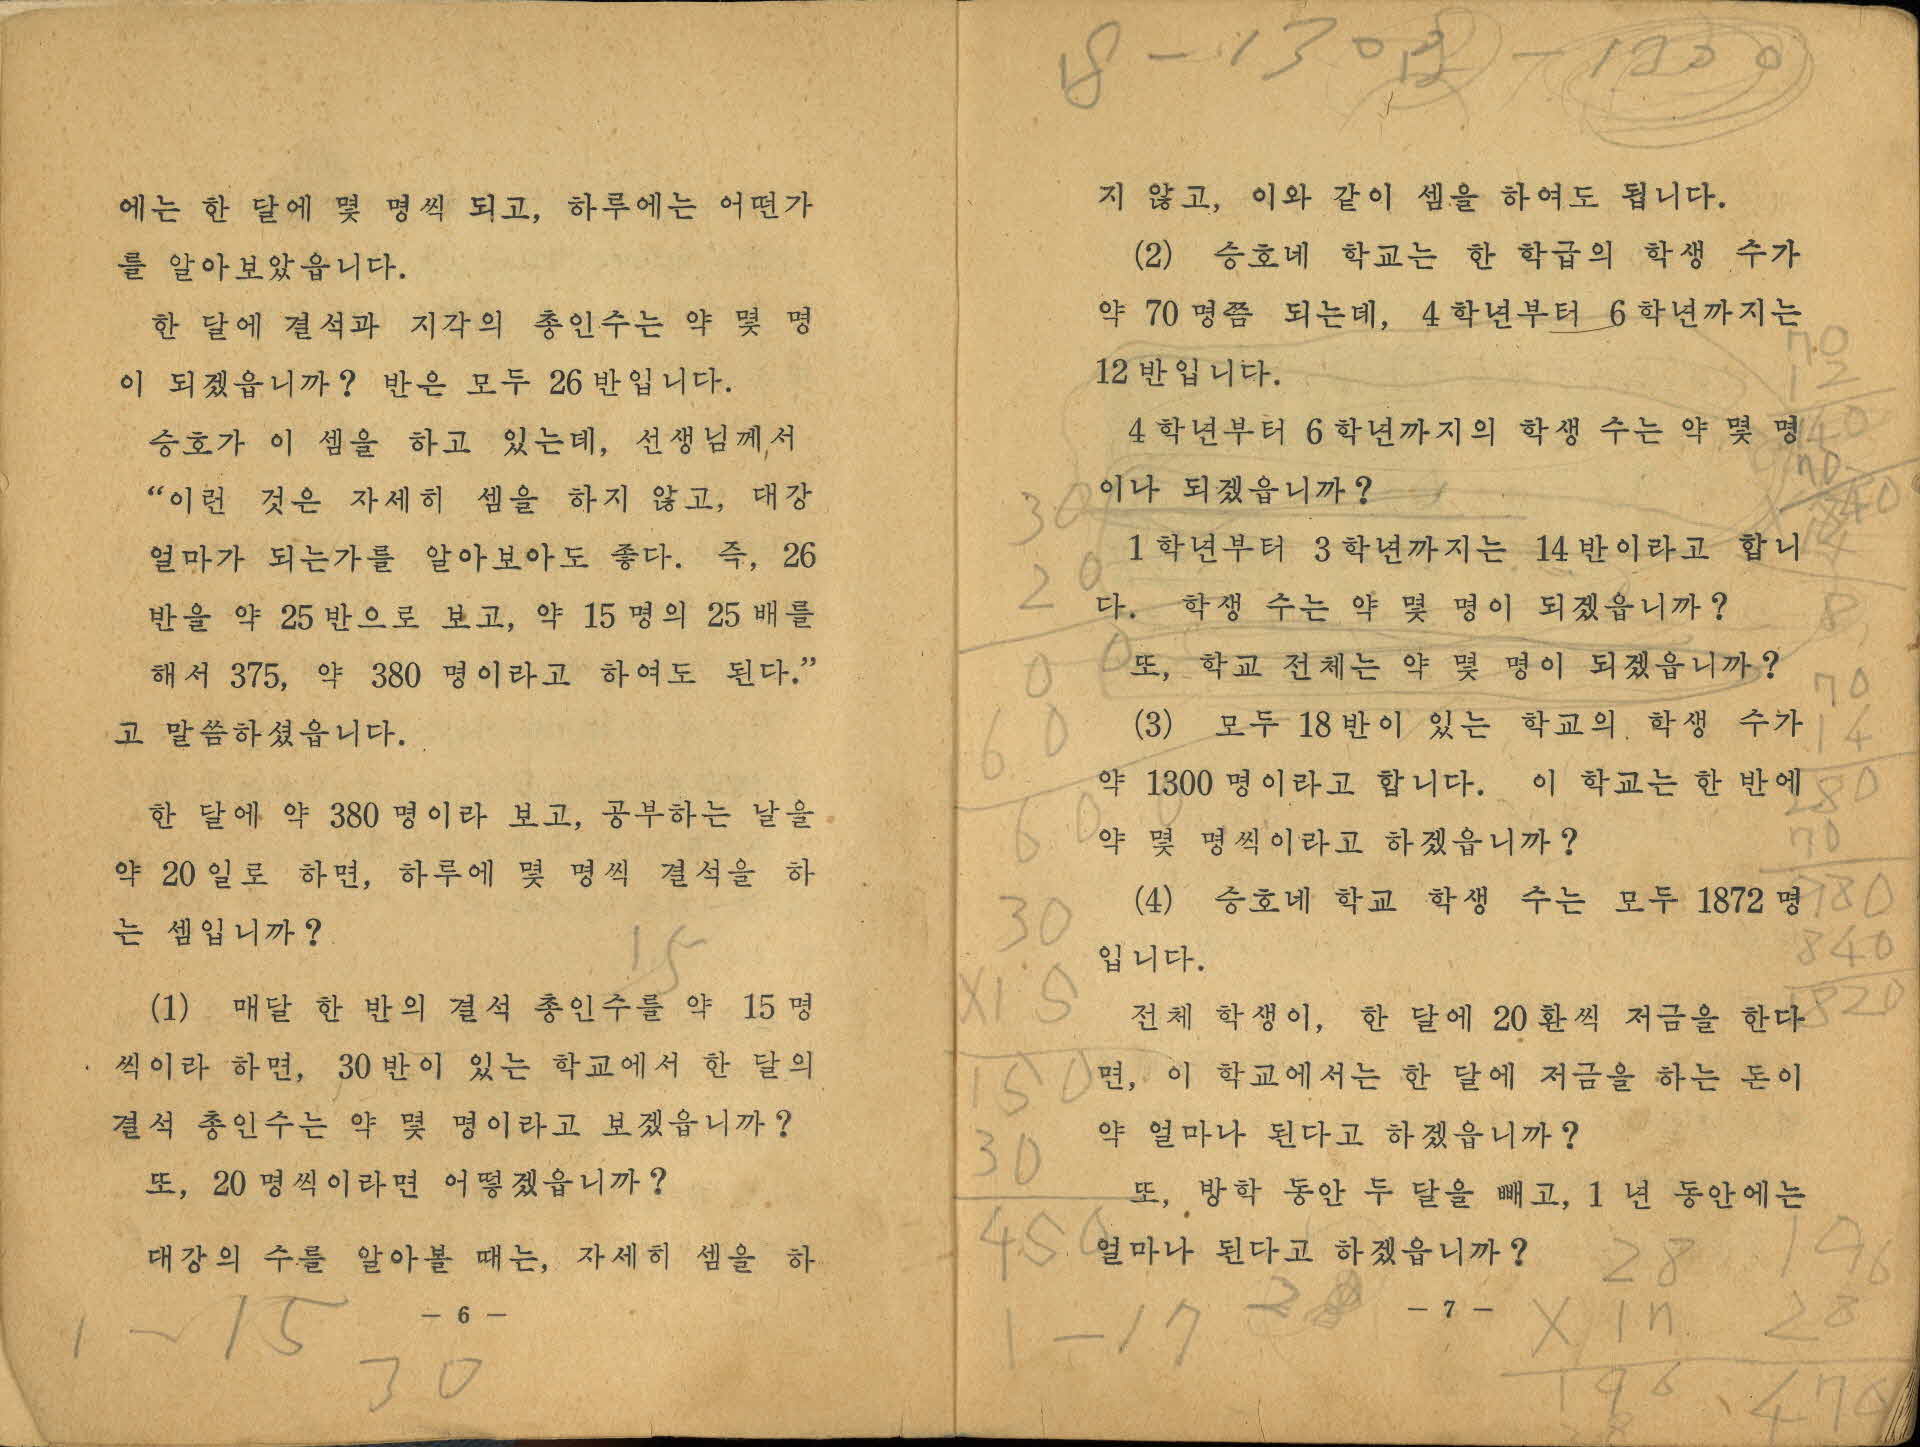 에는 한 달에 몇 명씩 되고, 하루에는 어떤가
를 알아보았읍니다.
한 달에 결석과 지각의 총인수는 약 몇 명
이 되겠읍니까? 반은 모두 26반입니다.
승호가 이 셈을 하고 있는데, 선생님께서
“이런 것은 자세히 셈을 하지 않고, 대강
얼마가 되는가를 알아보아도 좋다. 즉, 26
반을 약 25반으로 보고, 약 15명의 25배를
해서 375, 약 380 명이라고 하여도 된다.”
고 말씀하셨읍니다.
한 달에 약 380명이라 보고, 공부하는 날을
약 20일로 하면, 하루에 몇 명씩 결석을 하
는 셈입니까?
15
(1) 매달 한 반의 결석 총인수를 약 15명
씩이라 하면, 30반이 있는 학교에서 한 달의
결석 총인수는 약 몇 명이라고 보겠읍니까?
또, 20명씩이라면 어떻겠읍니까?
대강의 수를 알아볼 때는, 자세히 셈을 하
— 6 —
1 ~ 15
30
지 않고, 이와 같이 셈을 하여도 됩니다.
(2) 승호네 학교는 한 학급의 학생 수가
약 70명쯤 되는데, 4학년부터 6학년까지는
12반입니다.
4학년부터 6학년까지의 학생 수는 약 몇 명
이나 되겠읍니까?
1학년부터 3학년까지는 14반이라고 합니
다. 학생 수는 약 몇 명이 되겠읍니까?
또, 학교 전체는 약 몇 명이 되겠읍니까?
(3) 모두 18반이 있는 학교의 학생 수가
약 1300명이라고 합니다. 이 학교는 한 반에
약 몇 명씩이라고 하겠읍니까?
(4) 승호네 학교 학생 수는 모두 1872명
입니다.
전체 학생이, 한 달에 20환씩 저금을 한다
면, 이 학교에서는 한 달에 저금을 하는 돈이
약 얼마나 된다고 하겠읍니까?
또, 방학 동안 두 달을 빼고, 1년 동안에는
얼마나 된다고 하겠읍니까?
— 7 —
30
20
0 0
6 0
6 0 0
30
X15
150
30
450
1 — 17
70
12
140
70
840
70
14
280
70
980
840
1820
28
196
28
476